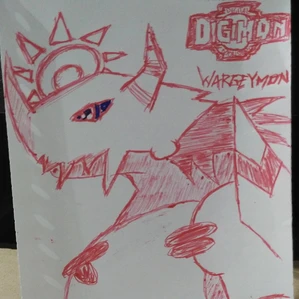 DIGIMON
WARGEYMON